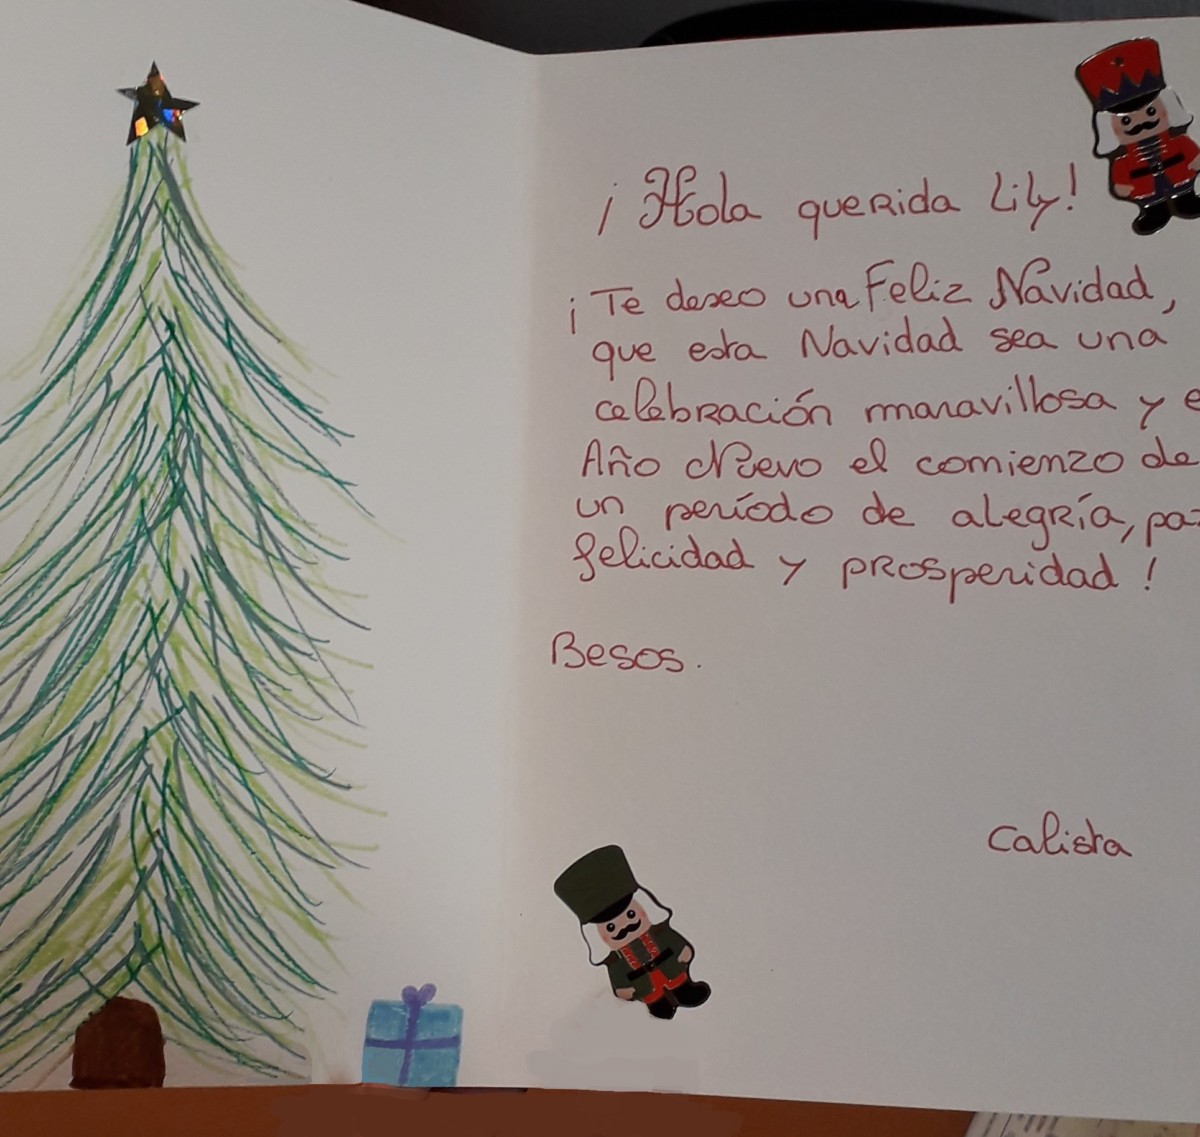 ¡Hola querida Lily!
¡Te deseo una Feliz Navidad,
que esta Navidad sea una
celebración maravillosa y e
Año Nuevo el comienzo de
un período de alegría, paz
felicidad y prosperidad!
Besos.
Calista